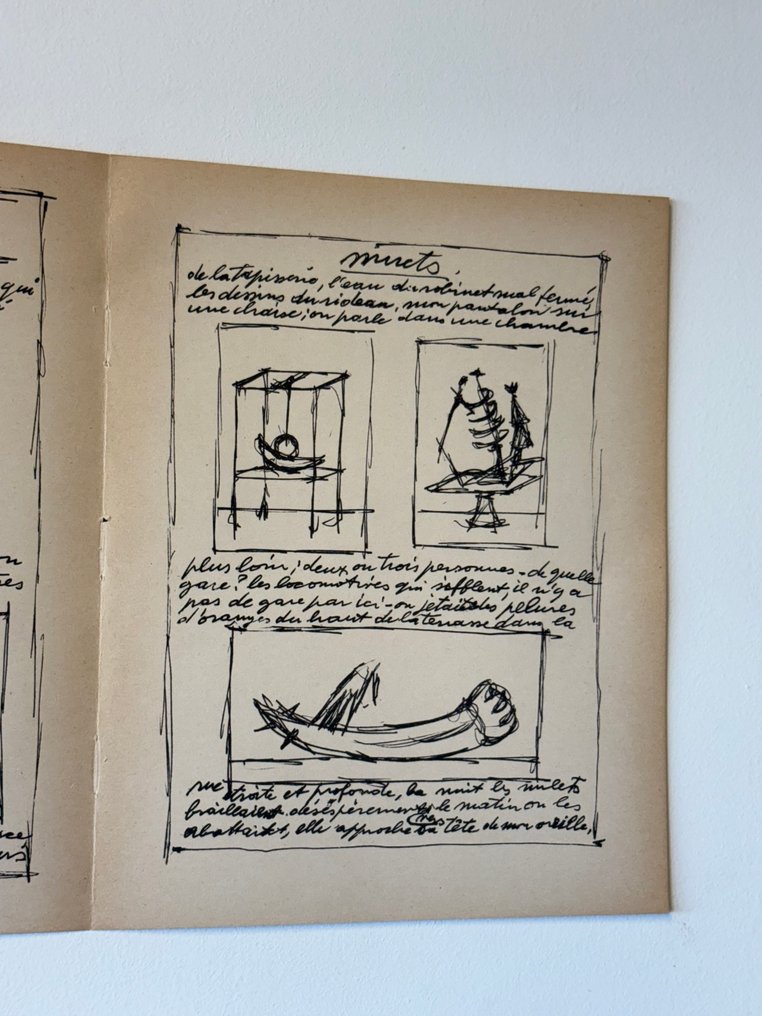 qui
muets.
de la tapisserie, l'eau du robinet mal fermé,
les dessins du rideau, mon pantalon sur
une chaise; on parle dans une chambre
plus loin; deux ou trois personnes - de quelle
gare? les locomotives qui sifflent, il n'y a
pas de gare par ici - on jetait des pelures
d'oranges du haut de la terrasse dans la
rue étroite et profonde, la nuit les mulets
braillaient désespérement, le matin on les
abattait, elle approche sa tête de mon oreille,